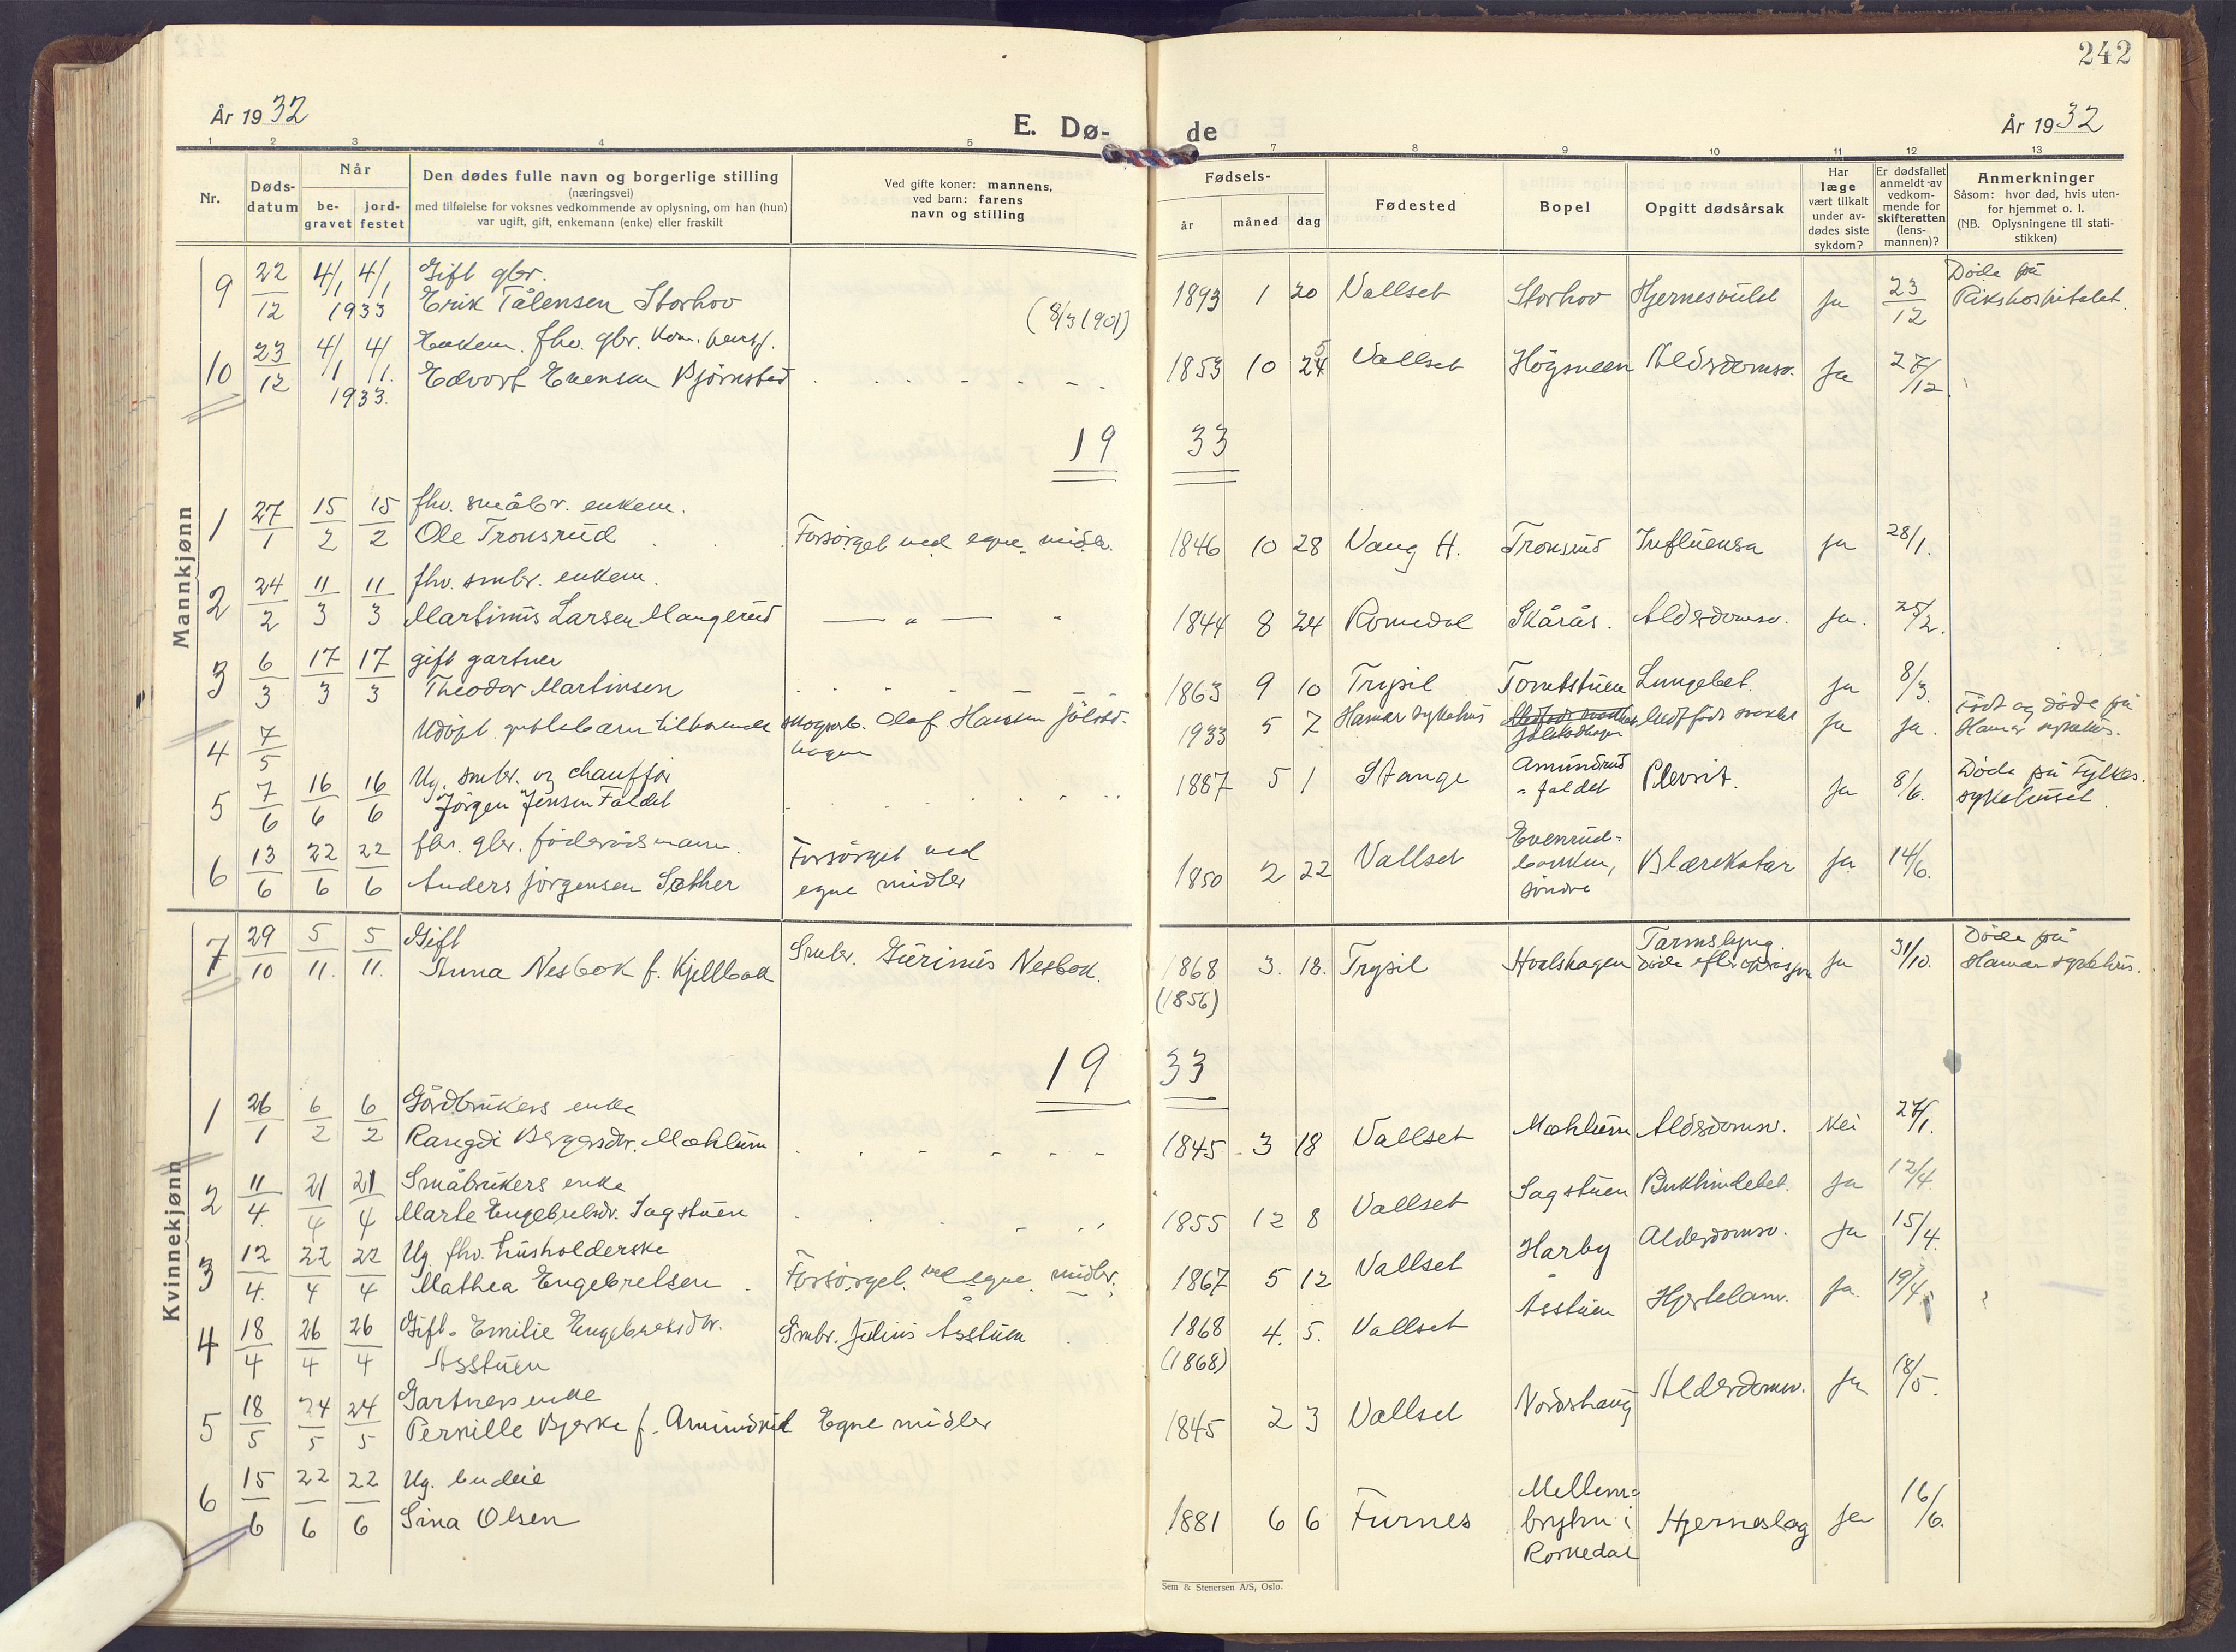 242
År 1932
E. Dø-
de
År 1932
1 2 3 4 5 7 8 9 10 11 12 13
Nr.
Døds-
datum
Når
be-
gravet
jord-
festet
Den dødes fulle navn og borgerlige stilling
(næringsvei)
med tilføielse for voksnes vedkommende av oplysning, om han (hun)
var ugift, gift, enkemann (enke) eller fraskilt
Ved gifte koner: mannens,
ved barn: farens
navn og stilling
Fødsels-
år måned dag
Fødested
Bopel
Opgitt dødsårsak
Har
læge
vært tilkalt
under av-
dødes siste
sykdom?
Er dødsfallet
anmeldt av
vedkom-
mende for
skifteretten
(lens-
mannen)?
Anmerkninger
Såsom: hvor død, hvis uten-
for hjemmet o. l.
(NB. Oplysningene til stati-
stikken)
Mannkjønn
9 22/12 4/1 4/1 1933 Gift gbr.
Erik Tålensen Storhov (8/3 1901) 1893 1 20 Vallset Storhov Hjernesvulst Ja 23/12 Døde på
Rikshospitalet.
10 23/12 4/1 4/1 1933. Enkem. fhv. gbr. kom.
Edvart Evensen Bjørnstad 1853 10 24 5 Vallset Högsveen Aldersdomsv. Ja 27/12
19 33
1 27/1 15/2 15/2 fhv. småbr. enkem.
Ole Tronsrud Forsörget ved egne midler. 1846 10 28 Vang H. Tronsrud Influensa ja 28/1.
2 24/2 11/3 11/3 fhv. smbr. enkem.
Martinus Larsen Mangerud — „ — 1844 8 24 Romedal Skårås. Aldersdomsv. Ja. 25/2.
3 6/3 17/3 17/3 gift gartner
Theodor Martinsen 1863 9 10 Trysil Tomtstuen Lungebet. ja 8/3.
4 7/5 Udöpt guttebarn tilhörende skogsarb. Olaf Hansen Jölstad-
hagen 1933 5 7 Hamar sykehus Jölstadhagen Medfödt svakhet Ja ja. Födt og döde på
Hamar sykehus.
5 7/6 16/6 16/6 Ug. smbr. og chauffør
Jörgen Jensen Faldet 1887 5 1 Stange Amundrud
- faldet Plevrit. Ja 8/6. Döde på Fylkes-
sykehuset.
6 13/6 22/6 22/6 fhv. gbr. föderådsmann.
Anders Jörgensen Sæther Forsörget ved
egne midler 1850 2 22 Vallset Evenrud-
bakken,
söndre Blærekatar Ja 14/6.
7 29/10 5/11. 5/11. Gift
Anna Nesbak f. Kjellbak Smbr. Gurinus Nesbak. 1868 (1856) 3. 18. Trysil Hvalshagen Tarmslyng.
Döde efter operasjon Ja 31/10. Döde på
Hamar sykehus.
19 33
Kvinnekjønn
1 26/1 6/2 6/2 Gårdbrukers enke
Rangdi Bergersdtr. Mæhlum 1845 3 18 Vallset Mæhlum Aldersdomsv. Nei 27/1.
2 11/4. 21/4 21/4 Småbrukers enke
Marte Engebretsdtr. Sagstuen 1855 12 8 Vallset Sagstuen Bukhindebet. Ja 12/4.
3 12/4. 22/4 22/4 Ug. fhv. husholderske
Mathea Engebretsen Forsörget ved egne midler. 1867 5 12 Vallset Harby Aldersdomsv. Ja 15/4.
4 18/4 26/4 26/4 Gift. Emilie Engebretsdtr.
Åsstuen Smbr. Julius Åsstuen 1868 (1868) 4. 5. Vallset Åsstuen Hjertelam. Ja. 19/4.
5 18/5 24/5 24/5 Gartners enke
Pernille Bjerke f. Amundrud Egne midler 1845 2 3 Vallset Nordshaug Aldersdomsv. Ja 18/5.
6 15/6 22/6 22/6 Ug. budeie
Sina Olsen 1881 6 6 Furnes Mellem-
bryhn i
Romedal Hjerneslag Ja 16/6.
Sem & Stenersen A/S, Oslo.